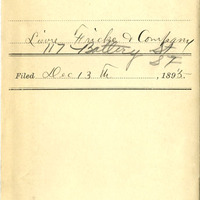 Livre, Fricke & Company
117 Battery St
SF
Filed Dec 13th, 1895.